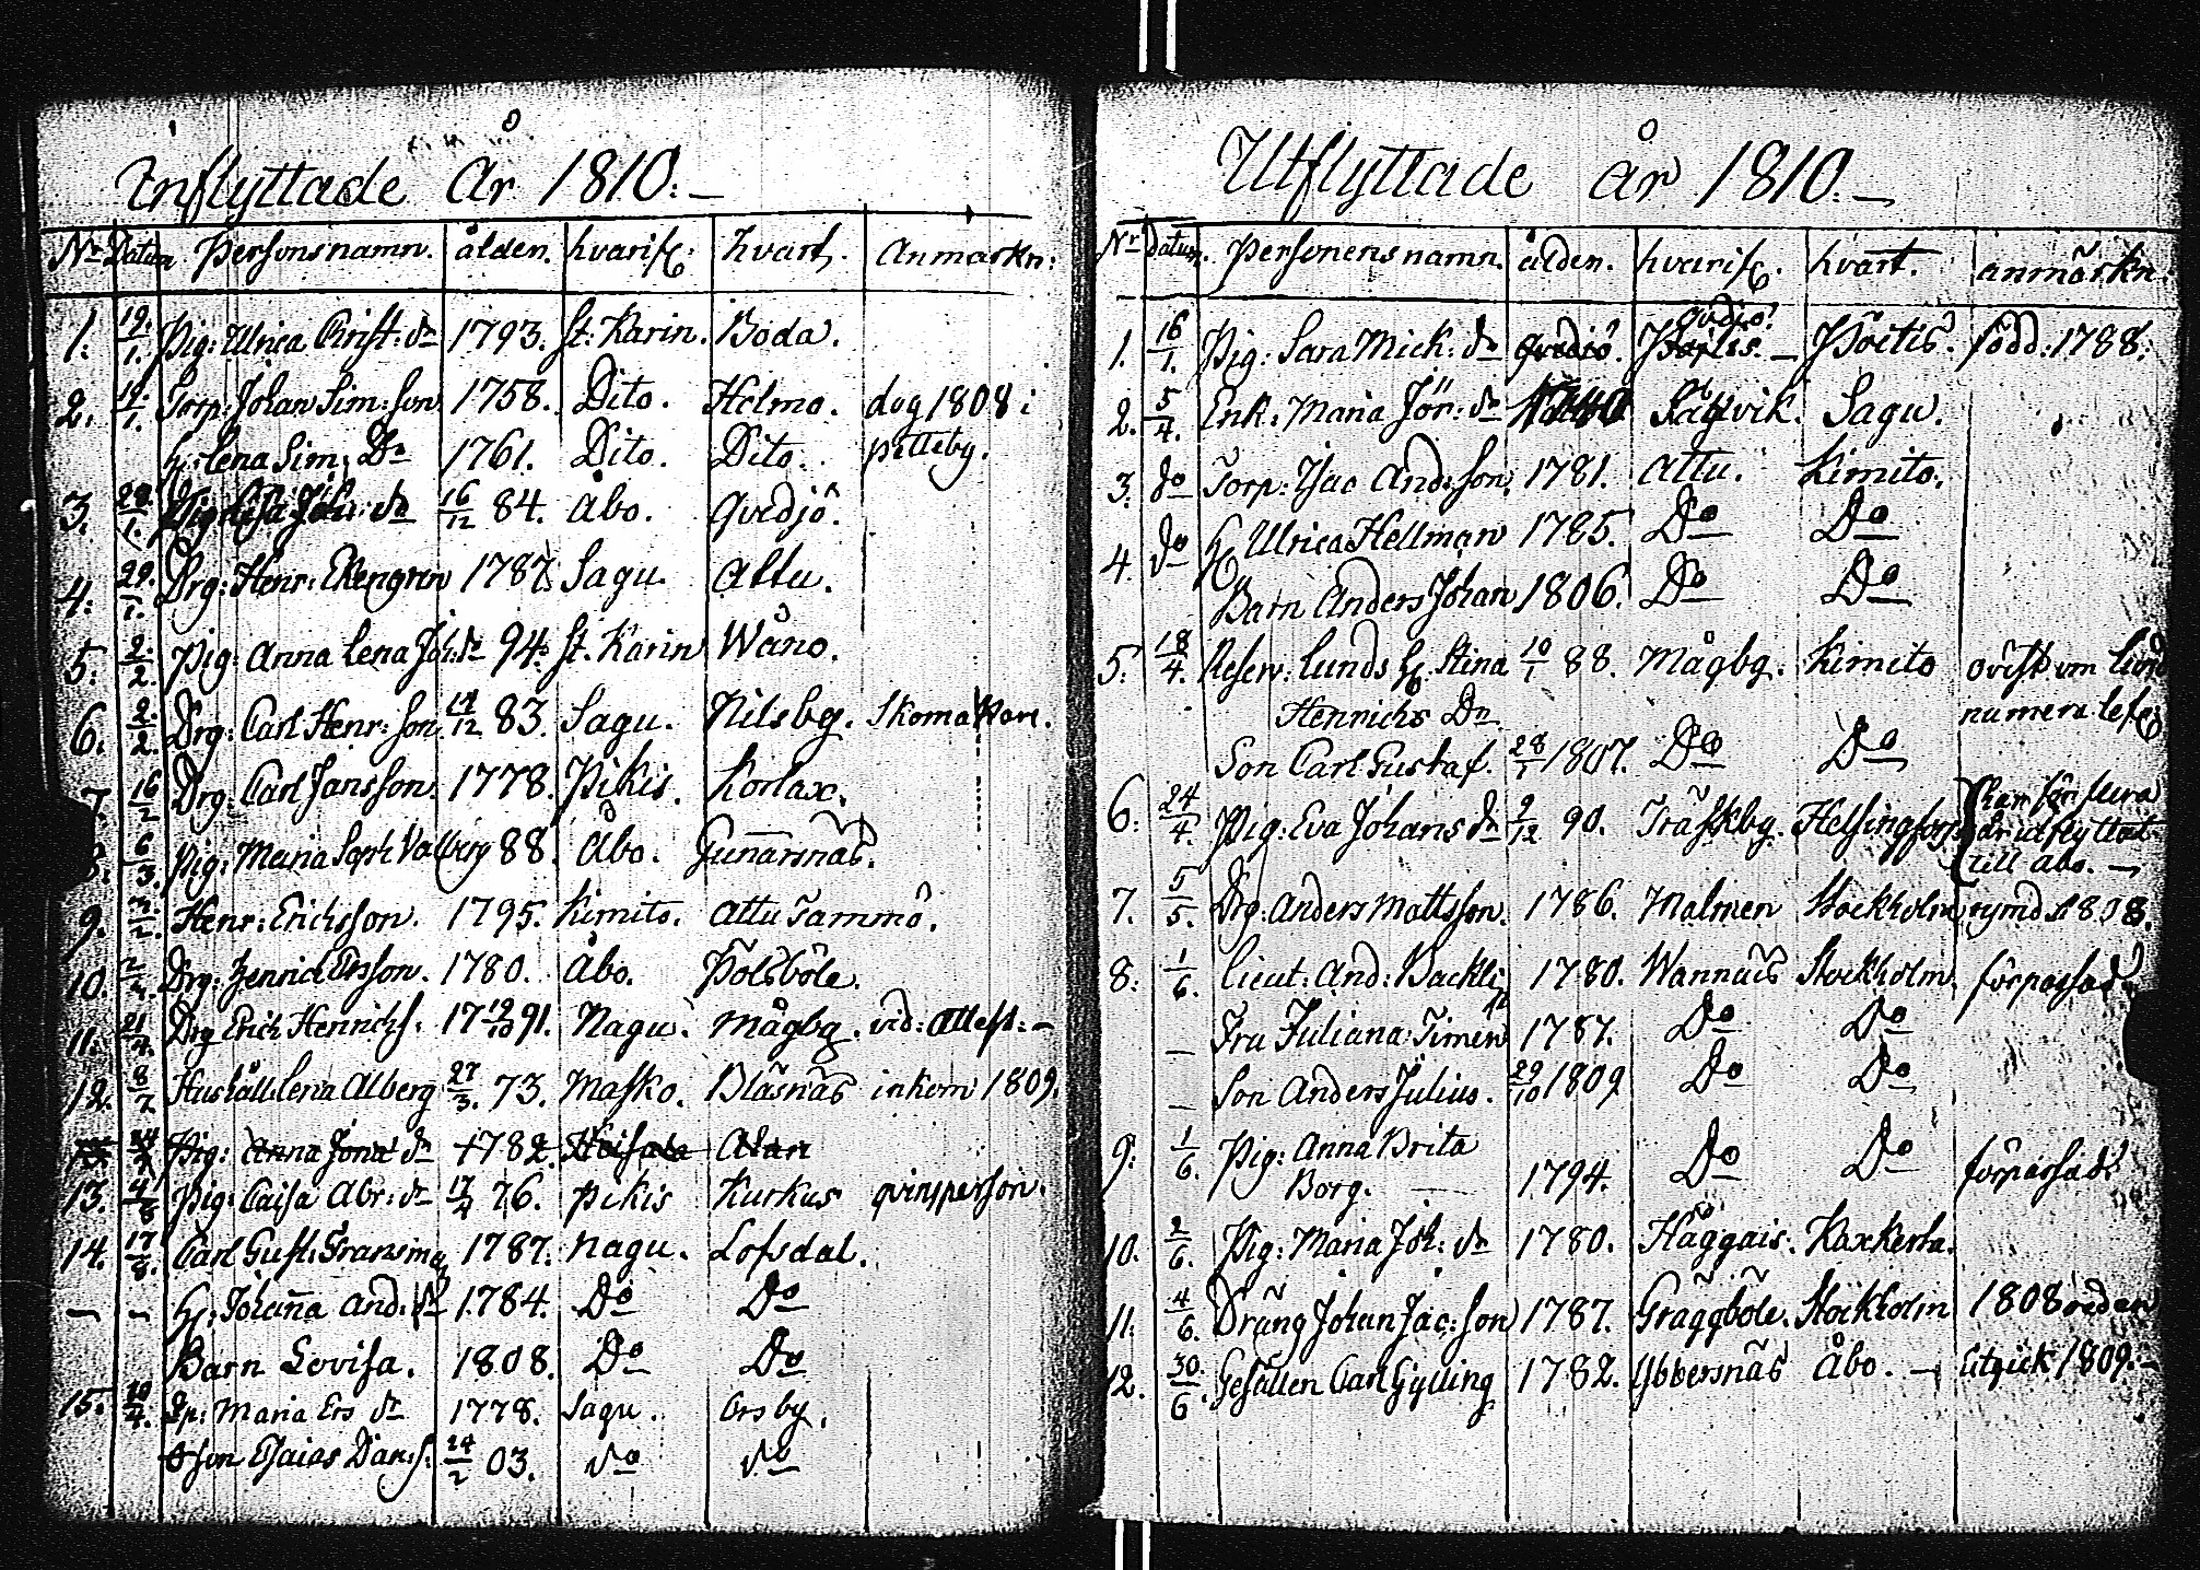 Inflyttade År 1810.
Nr Datum Personsnamn. ålden. hvarifr: hvart. Anmärkn:
1. 19/1. Pig: Ulrica Christ: dr 1793. St: Karin. Boda.
2. 19/1. Torp: Johan Sim: son 1758. Dito. Helmo. dog 1808 i
h: Lena Sim: Dr 1761. Dito. Dito. pitteby.
3. 29/1. Pig: Lisa Joh: dr 16/12 84. Åbo. Qvidjö.
4. 29/1. Drg: Henr: Ekengren 1787. Sagu. Attu.
5. 2/2. Pig: Anna Lena Joh: dr 94. St: Karin Wåno.
6. 2/2. Drg: Carl Henr: son 83. Sagu. Nilsby. Skomakare.
7. 16/2 Drg: Carl Jansson. 1778. Pikis. Korlax.
8. 6/3. Pig: Maria Soph Valberg 88. Åbo. Gunarsnäs.
9. Henr: Ericsson. 1795. Kimito. Attu Jammö.
10. Drg: Henrich Ersson. 1780. Åbo. Pölsböle.
11. 21/4. Drg Erich Henrichs. 17 19/10 91. Nagu. Mågby. vid: Attest: –
12. 8/7. Hushåll: Lena Alberg 27/3. 73. Masko. Bläsnäs inkom 1809.
Pig: Anna Jona dr 1782.
13. 4/8 Pig: Caisa Abr: dr 76. Pikis Kurkus qvinsperson.
14. 17/8. Carl Gust: 1787. Nagu. Lofsdal.
– – h: Johanna And: dr 1784. Do Do
Barn Lovisa. 1808. Do Do
15. Maria Ers dr 1778. Sagu. Ersby.
son Esaias Dan: s. 24/2 03. do do
Utflyttade år 1810. –
Nr datum. Personens namn. ålden. hvarifr. hvart. anmärkn:
Qvidjo.
1. 16/1. Pig: Sara Mick: dr Qvidjö. – Pöitis. född: 1788.
2. 5/4. Enk: Maria Jör: dr Sågvik. Sagu.
3. do Torp: Isac And: son. 1781. Attu. Kimito.
4. do h Ulrica Hellman 1785. Do Do
Barn Anders Johan 1806. Do Do
5. 18/4. Reserv: Lunds h: Stina 10/1 88. Mågby. Kimito ovist om Lund
Henrichs Dr numera lefr
Son Carl Gustaf. 28/1 1807. Do Do
6. 24/4. Pig: Eva Johans dr 9/12 90. Träskby. Helsingfors har för flera
år utflyttat
till Åbo. –
7. 5/5. Drg: Anders Mattsson. 1786. Malmen Stockholm rymd 1808.
8. 1/6. Lieut: And: 1780. Wannäs Stockholm. förpassad
– Fru Juliana Timen 1787. Do Do
– Son Anders Julius. 29/10 1809 Do Do
9. 1/6. Pig: Anna Brita
Borg. – 1794. Do Do förpassad.
10. 2/6. Pig: Maria Joh: dr 1780. Häggais. Kaxkerta.
11. 4/6. Dräng Johan Jac: son 1787. Gräggböle. Stockholm 1808 redan
12. 30/6. Gesällen Carl Gylling 1782. Ybbersnäs Åbo. – Utgick 1809. –